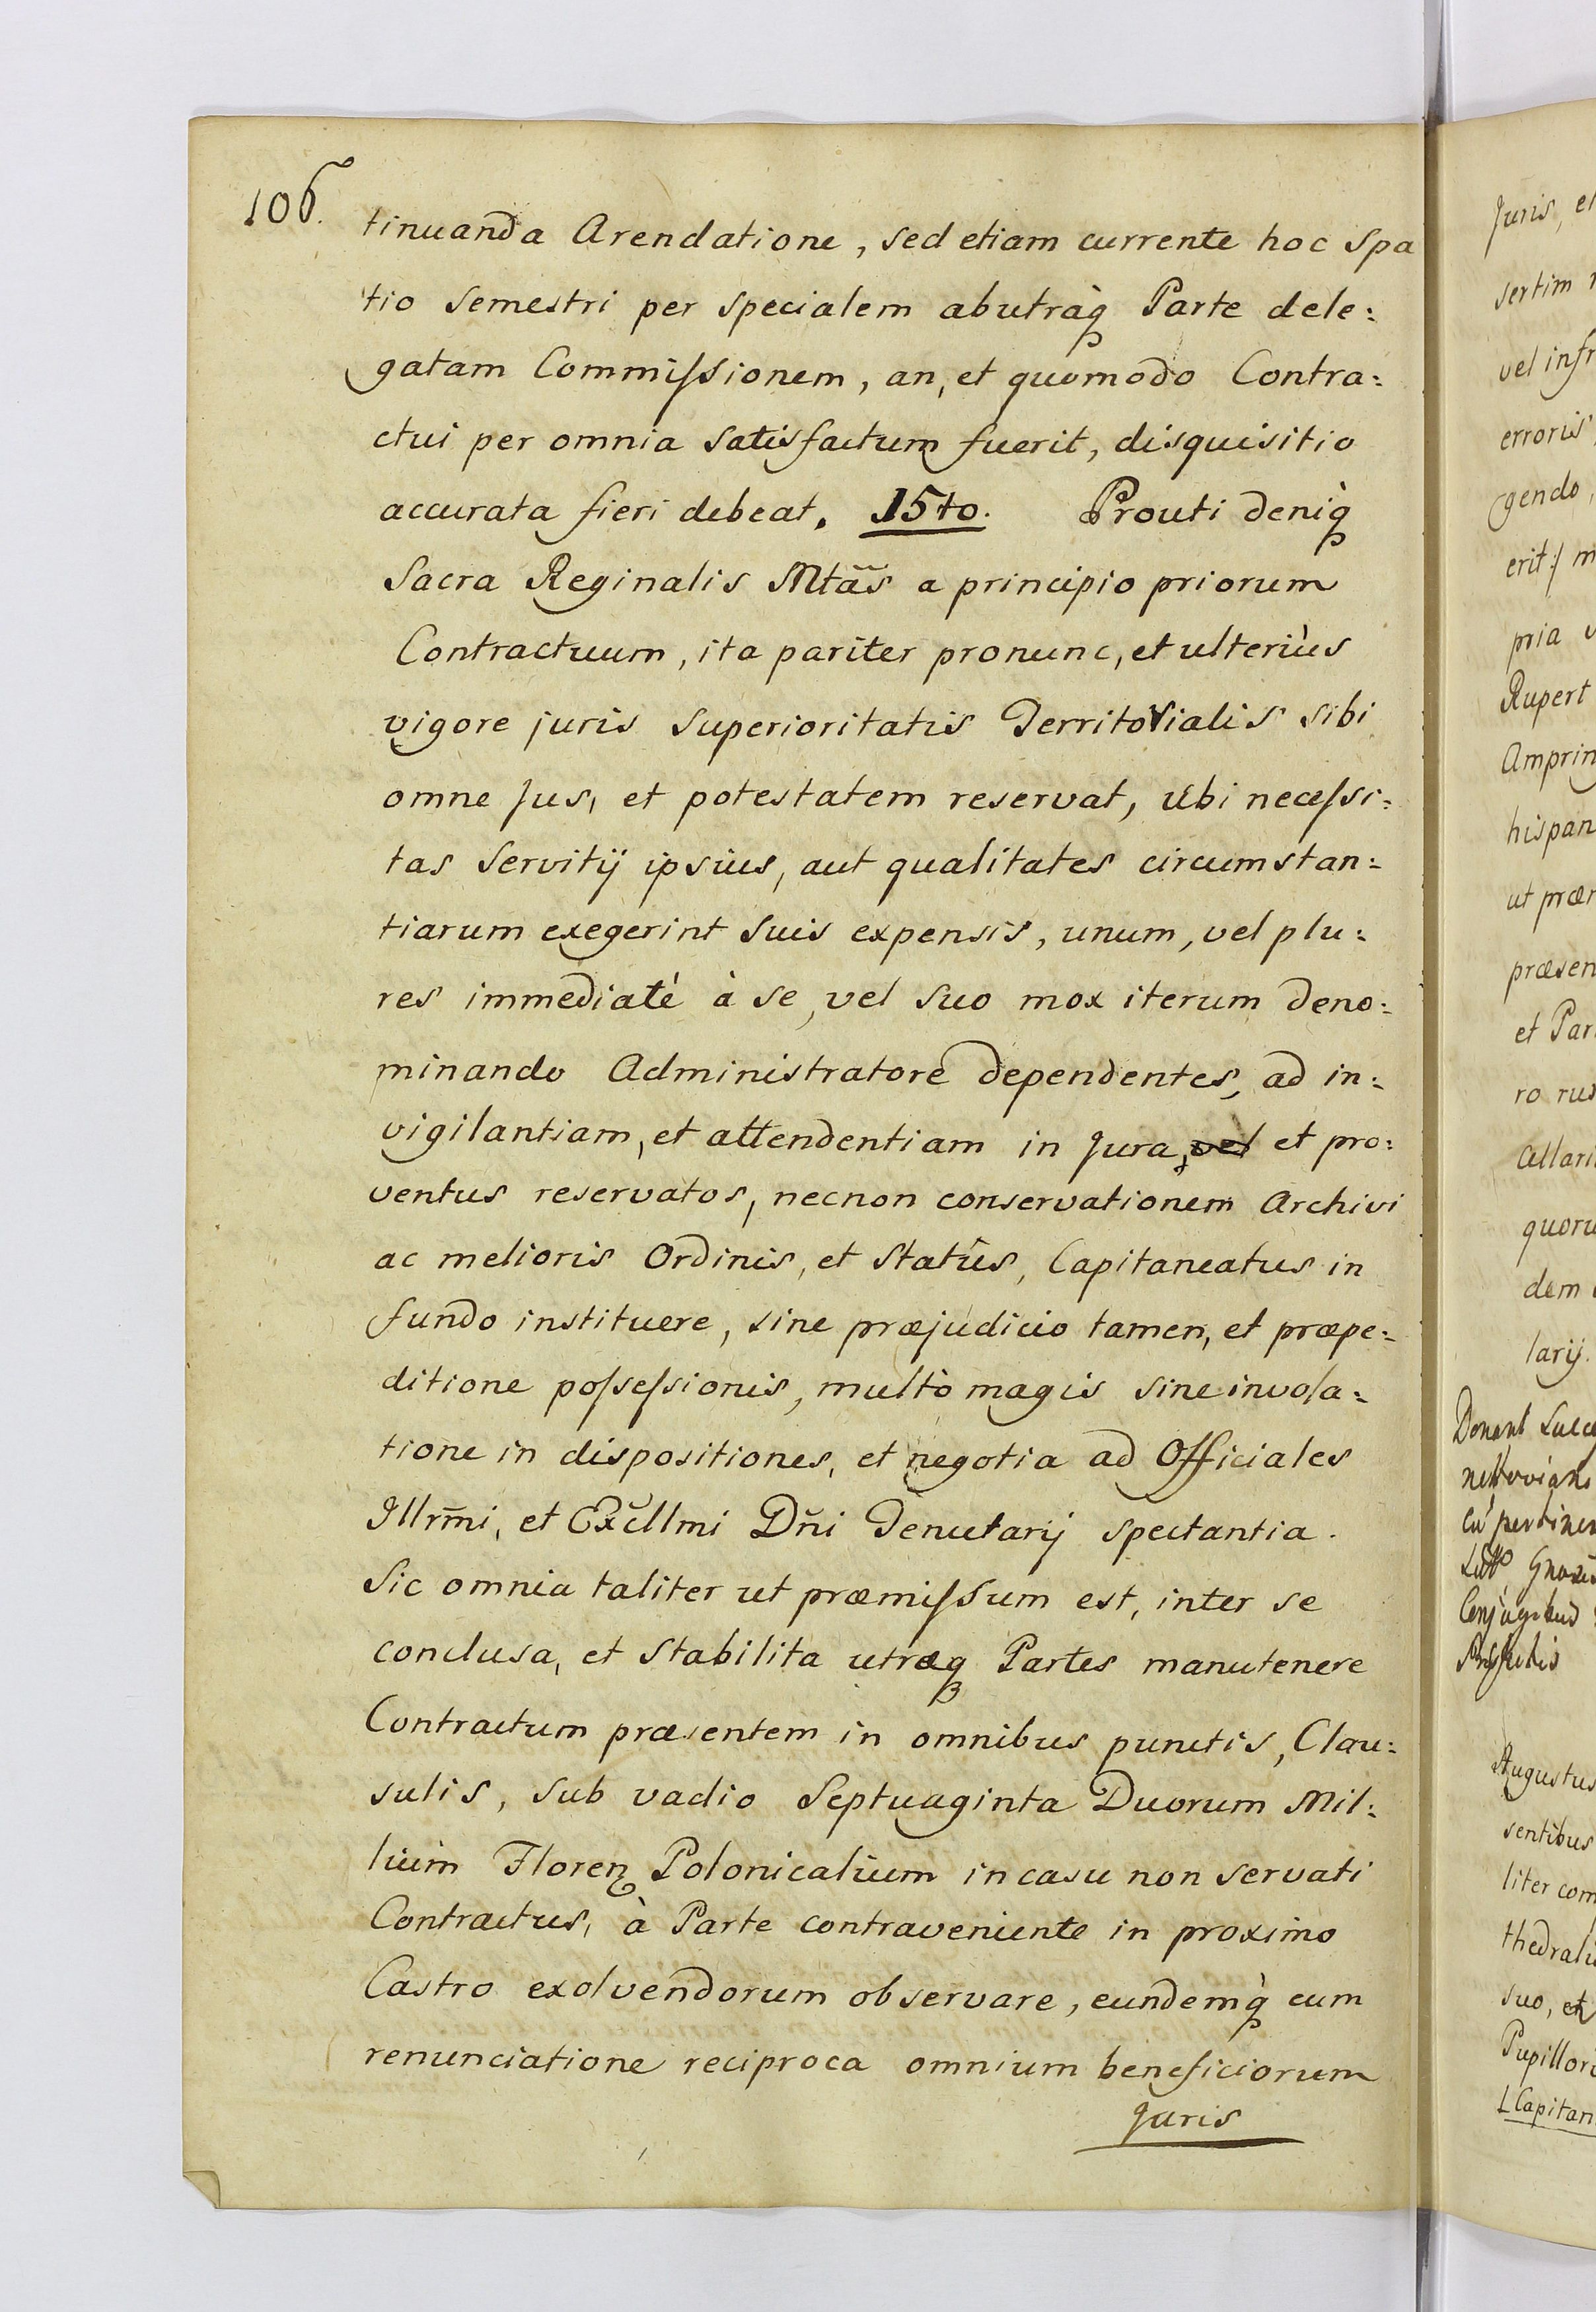 106.
tinuanda Arendatione, sed etiam currente hoc Spa
tio Semestri per Specialem abutràq Parte dele:
gatam Commissionem, an, et quomodo Contra:
ctui per omnia Satisfactum fuerit, disquisitio
accurata fieri debeat. 15to. Prouti deniq̀
Sacra Reginalis Mtãs a principio priorum
Contractuum, ita pariter pronunc, et ulteriùs
vigore juris Superioritatis Territorialis sibi
omne Jus, et potestatem reservat, Ubi necessi:
tas Servitij ipsius, aut qualitates circumstan:
tiarum exegerint Suis expensis, unum, vel plu:
res immediatè à se, vel Suo mox iterum deno:
minando Administratore dependentes, ad in:
vigilantiam, et attendentiam in Jura, vel et pro:
ventus reservatos, necnon conservationem Archivi
ac melioris Ordinis, et Statûs, Capitaneatus in
fundo instituere, sine præjudicio tamen, et præpe:
ditione possessionis, multò magis sine invola:
tione in dispositiones, et negotia ad Officiales
Illrm̃i, et Exc̃llmi Dñi Tenutarij spectantia.
Sic omnia taliter ut præmissum est, inter se
conclusa, et Stabilita utræq Partes manutenere
Contractum præsentem in omnibus punctis, Clau:
sulis, Sub vadio Septuaginta Duorum Mil:
lium Floren Polonicalium in casu non Servati
Contractus, à Parte contraveniente in proximo
Castro exolvendorum observare, eundemq̀ cum
renunciatione reciproca omnium beneficiorum
Juris
Juris, et
sertim
vel infr
erroris
gendo,
erit:/ m
pria
Rupert
Amprin
hispan
ut præ
præsen
et Par
ro rus
quoru
dem
larij.
Augustus
sentibus
liter com
thedrali
suo, et
Pupillor
Capitan